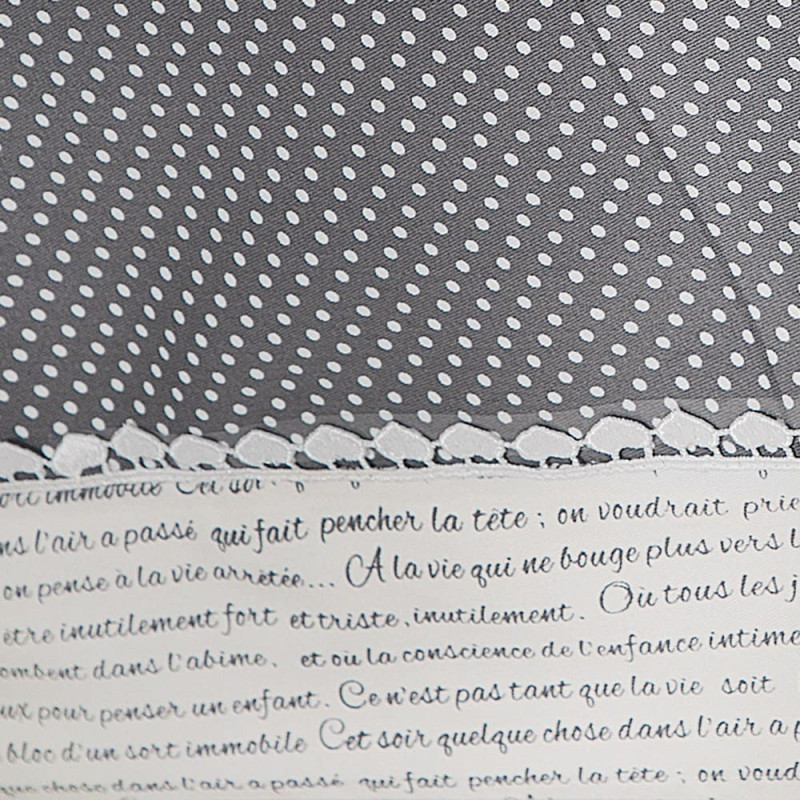 sort immobile Cet soir
ns l'air a passé qui fait pencher la tête ; on voudrait prie
on pense à la vie arrêtée... A la vie qui ne bouge plus vers l
être inutilement fort et triste, inutilement. Où tous les j
ombent dans l'abime, et où la conscience de l'enfance intime
ux pour penser un enfant. Ce n'est pas tant que la vie soit
bloc d'un sort immobile Cet soir quelque chose dans l'air a p
que chose dans l'air a passé qui fait pencher la tête ; on voud